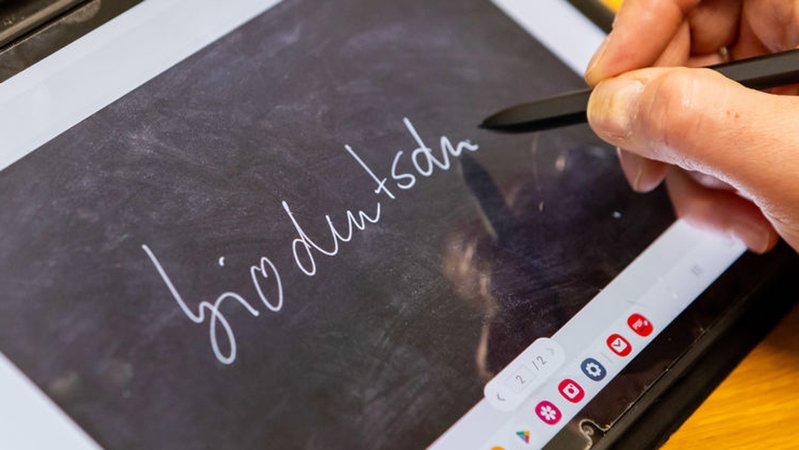 biodeutsch
2/2